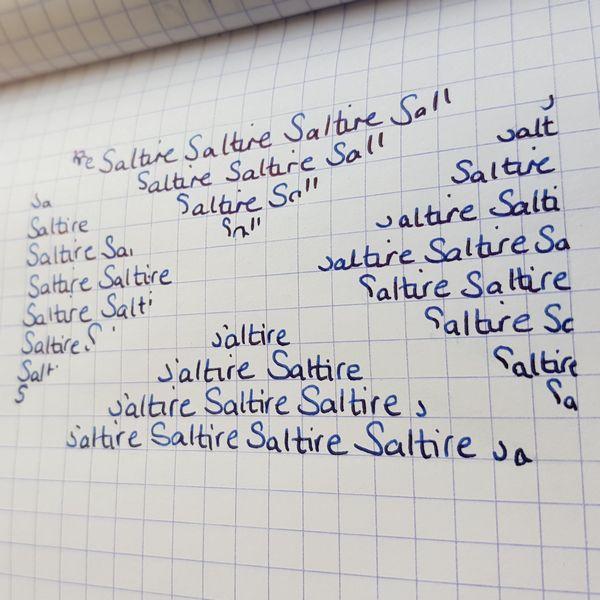 re Saltire Saltire Saltire Salt
Saltire Saltire Salt
Saltire Sal
Sal
Sa
Saltire
Saltire Sal
Saltire Saltire
Saltire Salti
Saltire S
Salt
S
S
Salt
Saltire
Saltire Salti
Saltire Saltire Sa
Saltire Saltire
Saltire Sa
Saltire
Sa
Saltire
Saltire Saltire
Saltire Saltire Saltire S
Saltire Saltire Saltire Saltire Sa